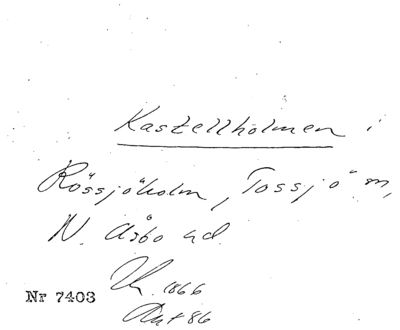 Kastellholmen i
Rössjöholm, Tossjö sn,
N. Åsbo hd.
1866
Nr 7403
86